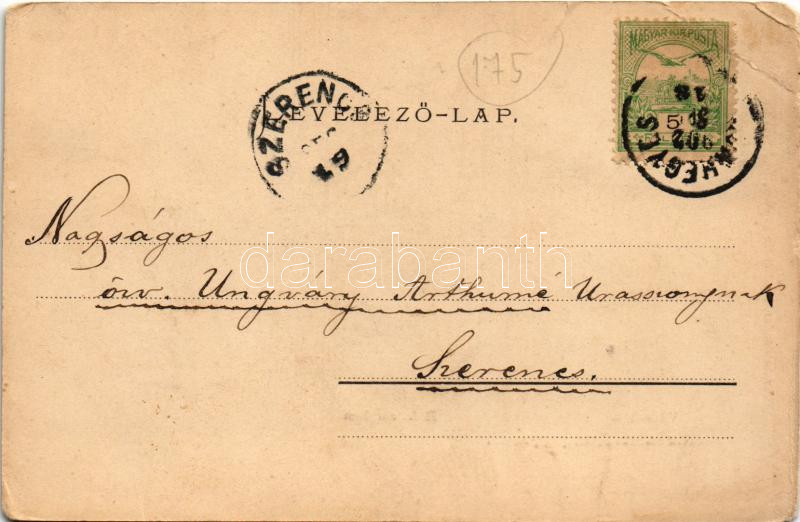 175
MAGYAR KIR. POSTA
5
902
18
SZERENC
19
LEVELEZŐ-LAP.
Nagságos
özv. Ungváry Arthurné Urasszonynak
Szerencs.
darabanth